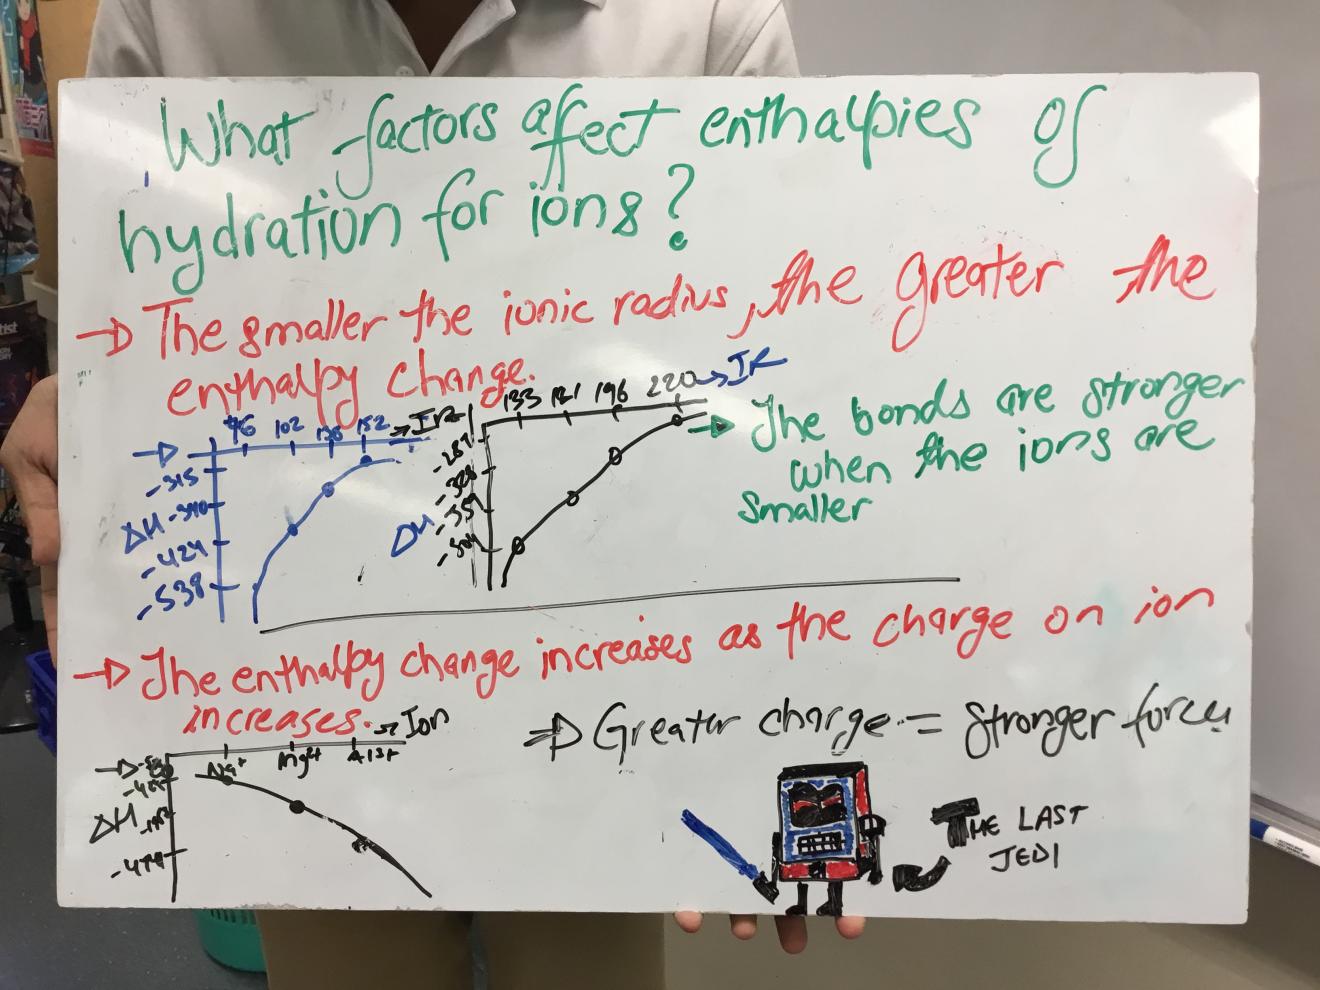 What factors affect enthalpies of
hydration for ions?
→ The smaller the ionic radius, the greater the
enthalpy change.
→ 76 102 138 152 → IR
-315
-340
-424
-538
ΔH
133 181 196 220 → IR
ΔH
→ The bonds are stronger
when the ions are
smaller
→ The enthalpy change increases as the charge on ion
increases.
→ Ion
Na+ Mg2+ Al3+
ΔH
⇒ Greater charge = Stronger forces
THE LAST
JEDI